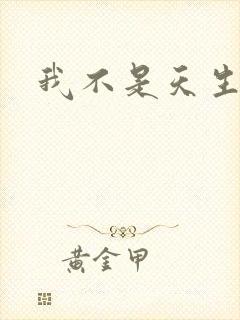 我不是天生
黄金甲